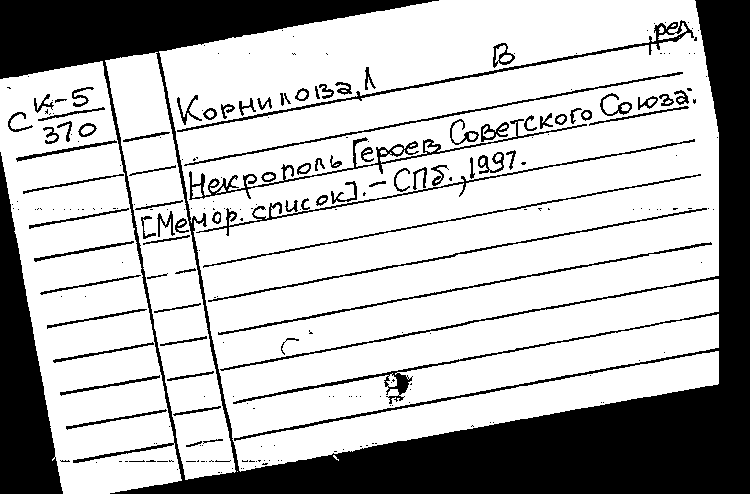 С К-5
370
Корнилова, Л В , ред.
Некрополь Героев Советского Союза:
[Мемор. список]. - СПб., 1997.